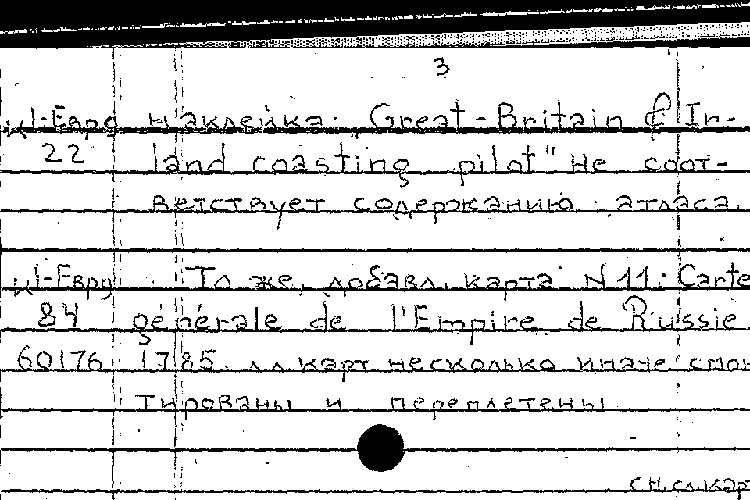 3
Ц1-Евро наклейка: „Great-Britain & Ir-
22 land coasting pilot" не соот-
ветствует содержанию атласа.
Ц1-Евро То же, добавл. карта N 11: Carte
84 générale de l'Empire de Russie
60176 1785. лл карт несколько иначе смон
тированы и переплетены
см. сл. кар